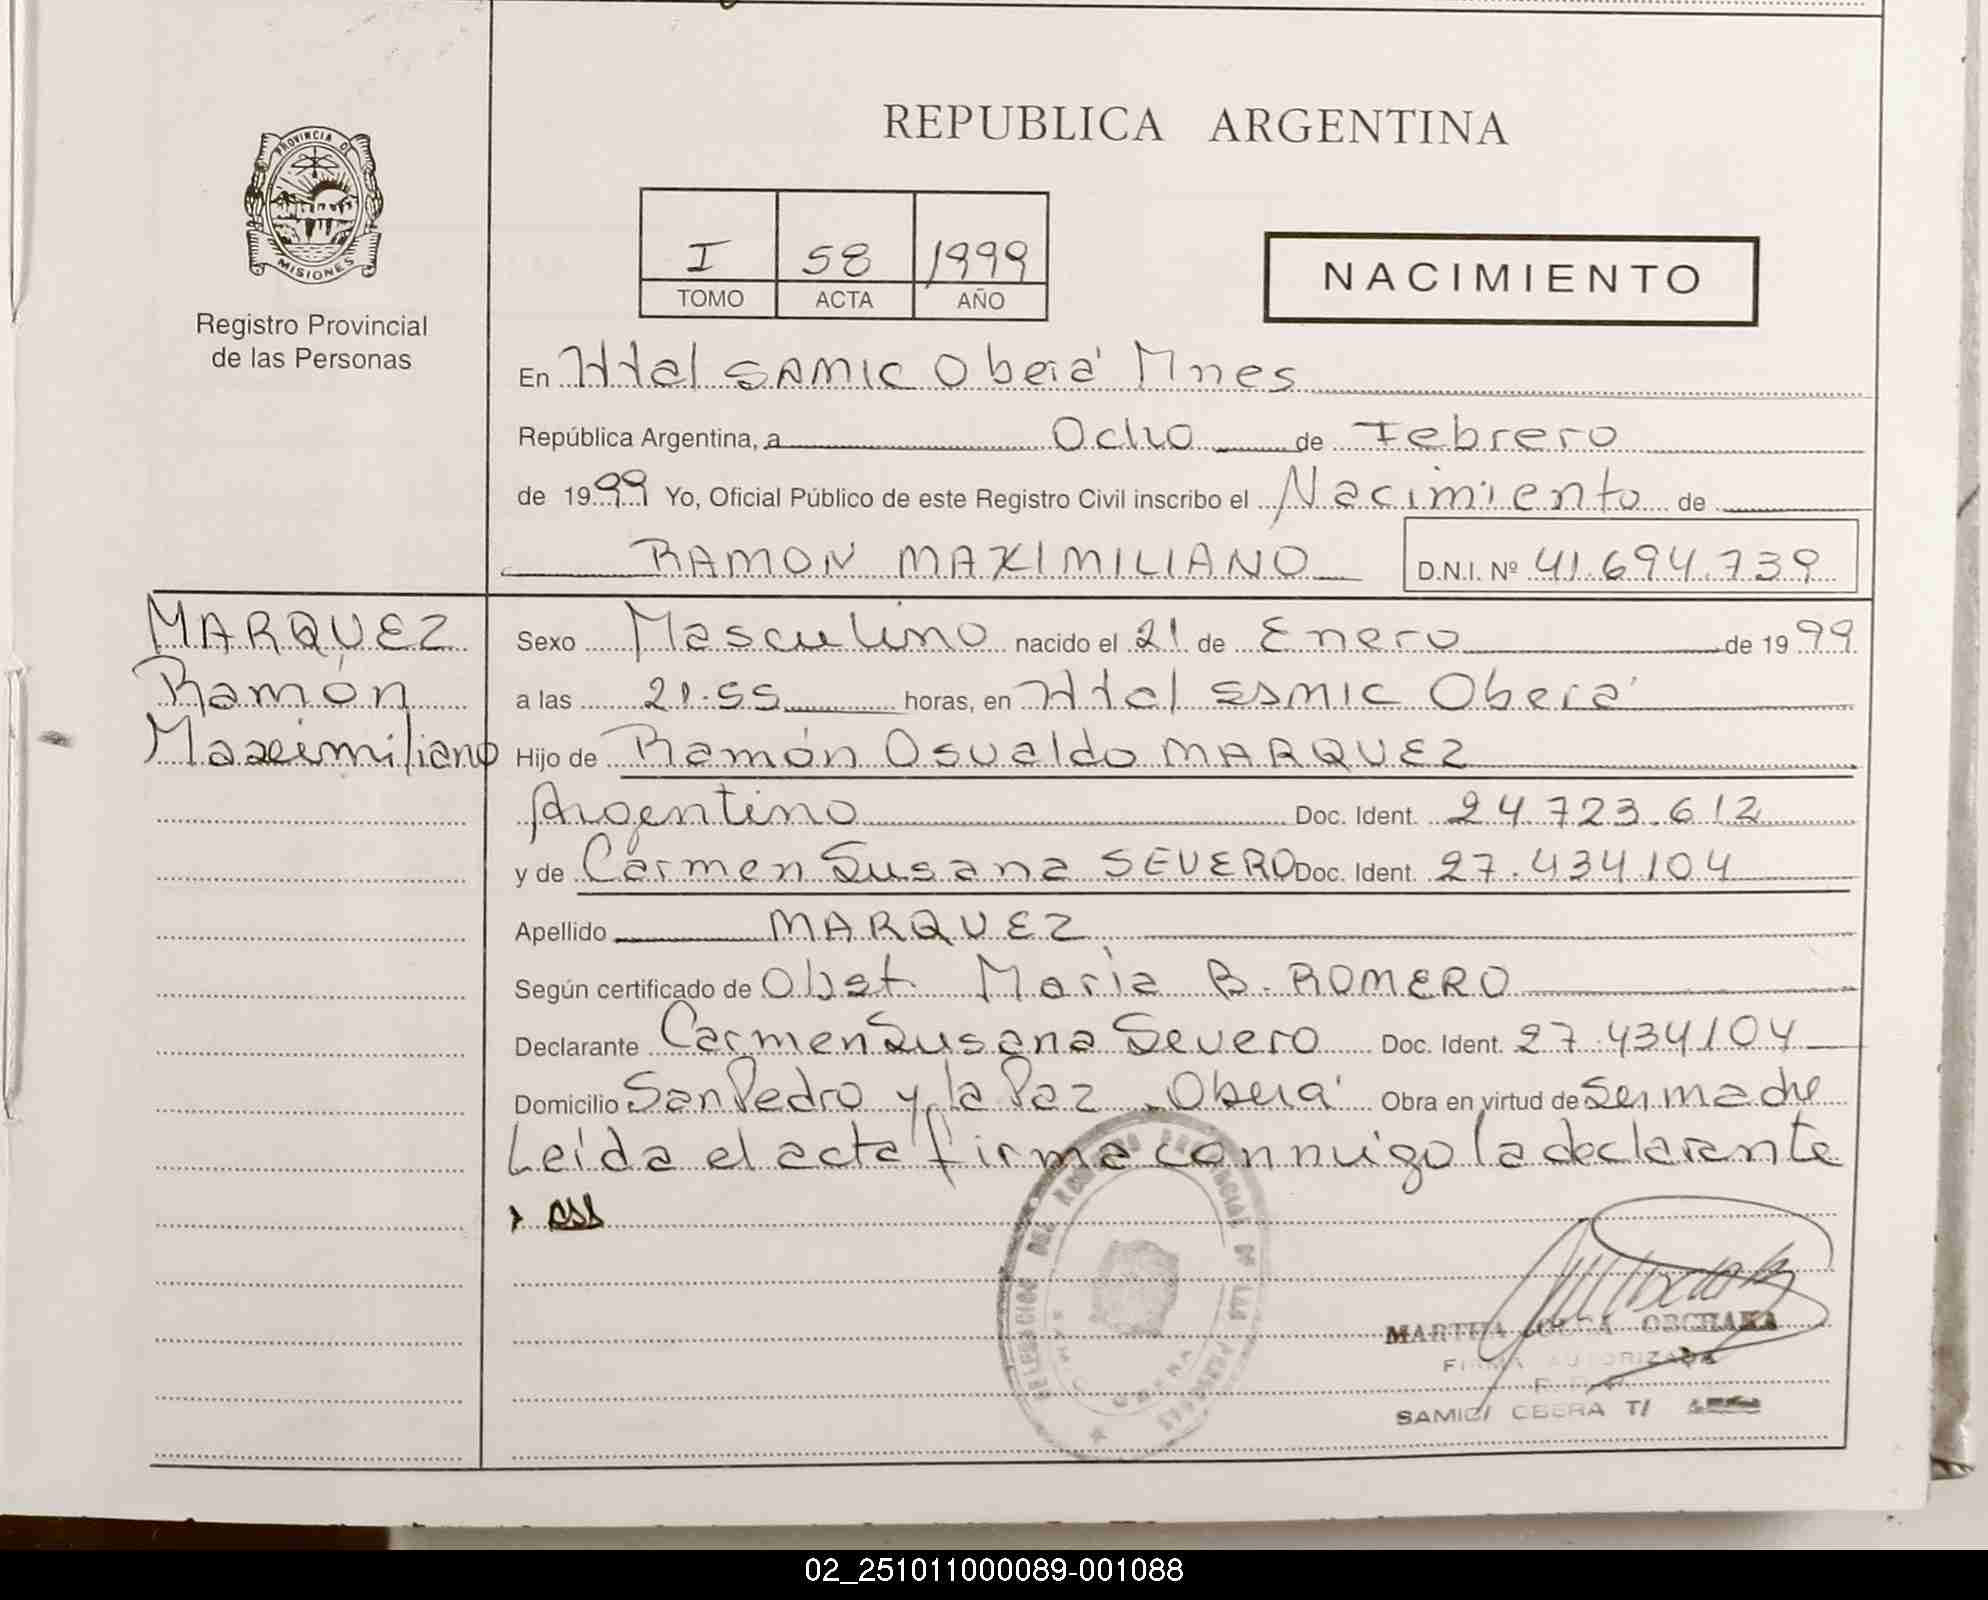 REPUBLICA ARGENTINA
PROVINCIA D
MISIONES
Registro Provincial
de las Personas
I 58 1999
TOMO ACTA AÑO
NACIMIENTO
En Htal SAMIC Oberá Mnes
República Argentina, a Ocho de Febrero
de 1999 Yo, Oficial Público de este Registro Civil inscribo el Nacimiento de
RAMON MAXIMILIANO D.N.I. Nº 41.694.739
MARQUEZ
Ramón
Maximiliano
Sexo Masculino nacido el 21 de Enero de 1999
a las 21.55 horas, en Htal SAMIC Oberá
Hijo de Ramón Osvaldo MARQUEZ
Argentino Doc. Ident. 24.723.612
y de Carmen Susana SEVERO Doc. Ident. 27.434104
Apellido MARQUEZ
Según certificado de Obst. María B. ROMERO
Declarante Carmen Susana Severo Doc. Ident. 27.434104
Domicilio San Pedro y la Paz Oberá Obra en virtud de ser madre
Leída el acta firma conmigo la declarante
DELEGACION DEL REGISTRO PROVINCIAL DE LAS PERSONAS
OBERA
MARTHA OLGA
FIRMA AUTORIZADA
SAMIC/ OBERA T/
02_251011000089-001088